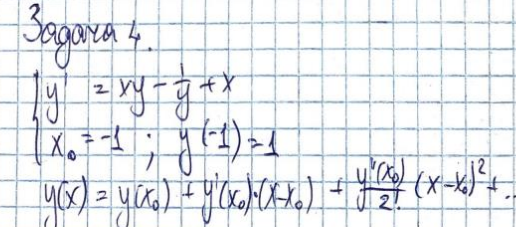 Задача 4.
{ y' = xy - 1/y + x
x₀ = -1 ; y(-1) = 1
y(x) = y(x₀) + y'(x₀)·(x-x₀) + y''(x₀)/2! (x-x₀)² + ..